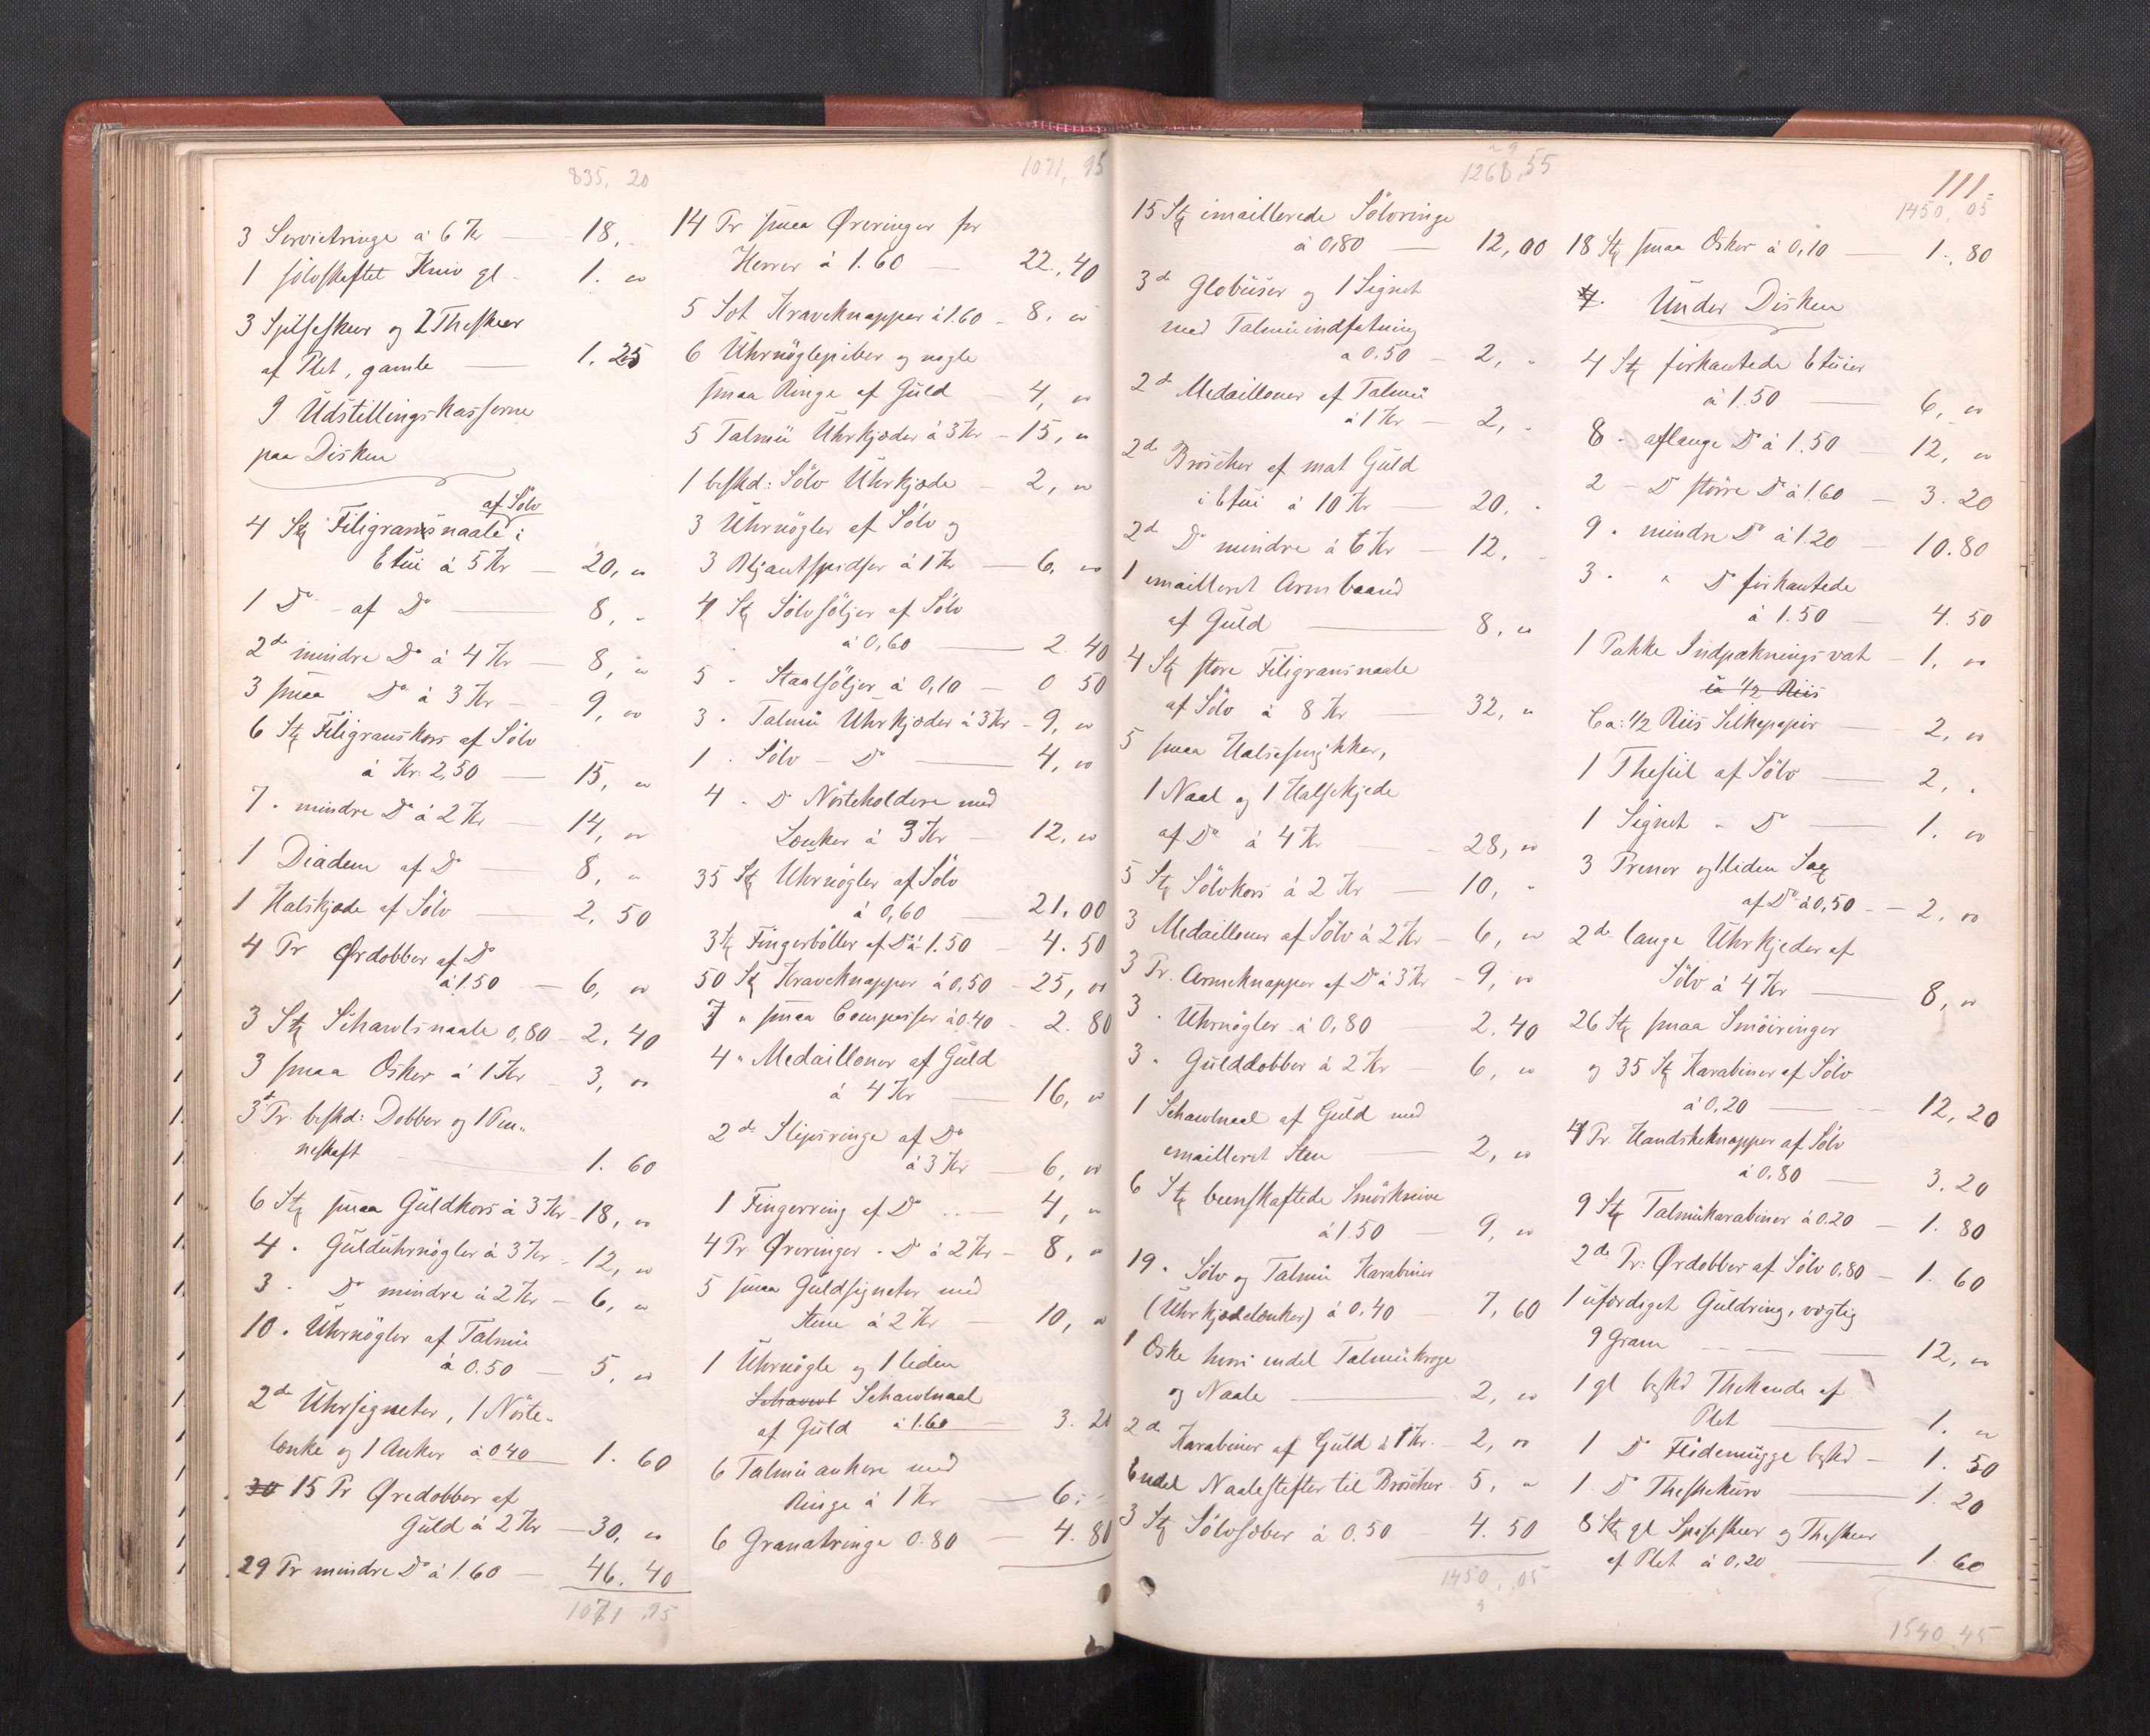 835, 20
3 Servietringe á 6 Kr — 18, -
1 sölvskeftet Kniv gl - 1. "
3 Spiseskeer og 2 Theskeer
af Plet, gamle — 1. 25
9 Udstillingskasserne
paa Disken
af Sölv
4 Stk Filigransnaale i
Etui á 5 Kr — 20, "
1 Do - af Do — 8, "
2de mindre Do á 4 Kr — 8, "
3 smaa Do á 3 Kr — 9, "
6 Stk Filigranskors af Sölv
á Kr. 2,50 — 15, "
7 " mindre Do á 2 Kr — 14, "
1 Diadem af Do — 8, "
1 Halskjæde af Sölv — 2, 50
4 Pr Ørdobber af Do
á 1.50 — 6, "
3 Stk Schawlsnaale 0,80 - 2. 40
3 smaa Æsker á 1 Kr - 3, "
3 Pr. beskd: Dobber og 1 Pen-
neskaft — 1. 60
6 Stk smaa Guldkors á 3 Kr - 18, "
4 " Gulduhrnøgler á 3 Kr - 12, "
3 " Do mindre á 2 Kr — 6, "
10 " Uhrnøgler af Talmü
á 0.50 — 5, "
2de Uhrsigneter, 1 Nöste-
lænke og 1 Anker á 0.40 1. 60
30 15 Pr Øredobber af
Guld á 2 Kr — 30, "
29 Pr mindre Do á 1.60 — 46. 40
1071 .95
1071, 95
14 Pr smaa Øreringer for
Herrer á 1.60 — 22., 40
5 Sølv Kraveknapper á 1.60 - 8. "
6 Uhrnøglepiber og nogle
smaa Ringe af Guld — 4, "
5 Talmü Uhrkjæder á 3 Kr - 15, "
1 beskd: Sölv Uhrkjæde — 2, "
3 Uhrnøgler af Sölv og
3 Blyantspidser á 1 Kr — 6, "
4 Stk Sölvsöljer af Sölv
á 0,60 — 2. 40
5 " Staalsöljer á 0,10 — 0 50
3 " Talmü Uhrkjæder á 3 Kr - 9, "
1 " Sölv - Do — 4, "
4 " Do Nösteholdere med
Lænker á 3 Kr — 12. "
35 Stk Uhrnøgler af Sölv
á 0,60 — 21,00
3 Stk Fingerböller af Do á 1.50 — 4. 50
50 Stk Kraveknapper á 0,50 - 25, 00
7 " smaa Compasser á 0.40 - 2. 80
4 " Medailloner af Guld
á 4 Kr — 16, "
2de Slipsringe af Do
á 3 Kr — 6, "
1 Fingerring af Do — 4, "
4 Pr Øreringer - Do á 2 Kr — 8, "
5 smaa Guldsigneter med
Stene á 2 Kr — 10, "
1 Uhrnøgle og 1 liden
Schawl Schawlnaal
af Guld á 1.60 — 3. 20
6 Talmüankere med
Ringe á 1 Kr — 6, -
6 Granatringe 0.80 — 4. 80
1268,55
15 Stk emaillerede Sölvringe
á 0,80 — 12,00
3de Globuser og 1 Signet
med Talmüindfatning
á 0.50 - 2, "
2de Medailloner af Talmü
á 1 Kr — 2, "
2de Broscher af mat Guld
i Etui á 10 Kr — 20, "
2de Do mindre á 6 Kr — 12, -
1 emailleret Armbaand
af Guld — 8, "
4 Stk store Filigransnaale
af Sölv á 8 Kr — 32, "
5 smaa Halssmykker,
1 Naal og 1 Halskjede
af Do á 4 Kr — 28, "
5 Stk Sölvkors á 2 Kr — 10, "
3 Medailloner af Sölv á 2 Kr — 6, "
3 Pr. Ærmeknapper af Do á 3 Kr - 9, "
3 " Uhrnøgler á 0,80 2. 40
3 " Gulddobber á 2 Kr — 6, "
1 Schawlnaal af Guld med
emailleret Sten — 2, "
6 Stk beenskaftede Smörknive
á 1.50 — 9, "
19 " Sölv og Talmü Karabiner
(Uhrkjædelænker) á 0,40 — 7, 60
1 Æske hvori endel Talmükroge
og Naale — 2, "
2de Karabiner af Guld á 1 Kr. - 2, "
Endel Naalestifter til Broscher 5, "
3 Stk Sölvsæber á 0.50 — 4. 50
1450, 05
111.
1450, 05
18 Stk smaa Æsker á 0,10 — 1., 80
Under Disken
4 Stk firkantede Etuier
á 1.50 — 6, "
8 " aflange Do á 1.50 12, "
2 - Do större Do á 1.60 — 3. 20
9 " mindre Do á 1.20 — 10.80
3 " " Do firkantede
á 1.50 — 4. 50
1 Pakke Indpakningsvat - 1, "
Ca 1/2 Riis
Ca: 1/2 Riis Silkepapir — 2, "
1 Thesiil af Sölv — 2, "
1 Signet " Do — 1. "
3 Prener og 1 liden Sax
af Do á 0,50 — 2. "
2de lange Uhrkjeder af
Sölv á 4 Kr — 8, "
26 Stk smaa Snöiringer
og 35 Stk Karabiner af Sölv
á 0,20 — 12, 20
4 Pr. Handskeknapper af Sölv
á 0.80 — 3. 20
9 Stk Talmükarabiner á 0.20 — 1. 80
2de Pr: Ørdobber af Sölv 0.80 — 1. 60
1 ufærdiget Guldring, vægtig
9 Gram — 12, "
1 gl beskd Thekande af
Plet — 1. "
1 Do Flödemugge beskd — 1. 50
1 Do Theskekurv — 1. 20
8 Stk gl Spiseskeer og Theskeer
af Plet á 0,20 — 1. 60
1540 45